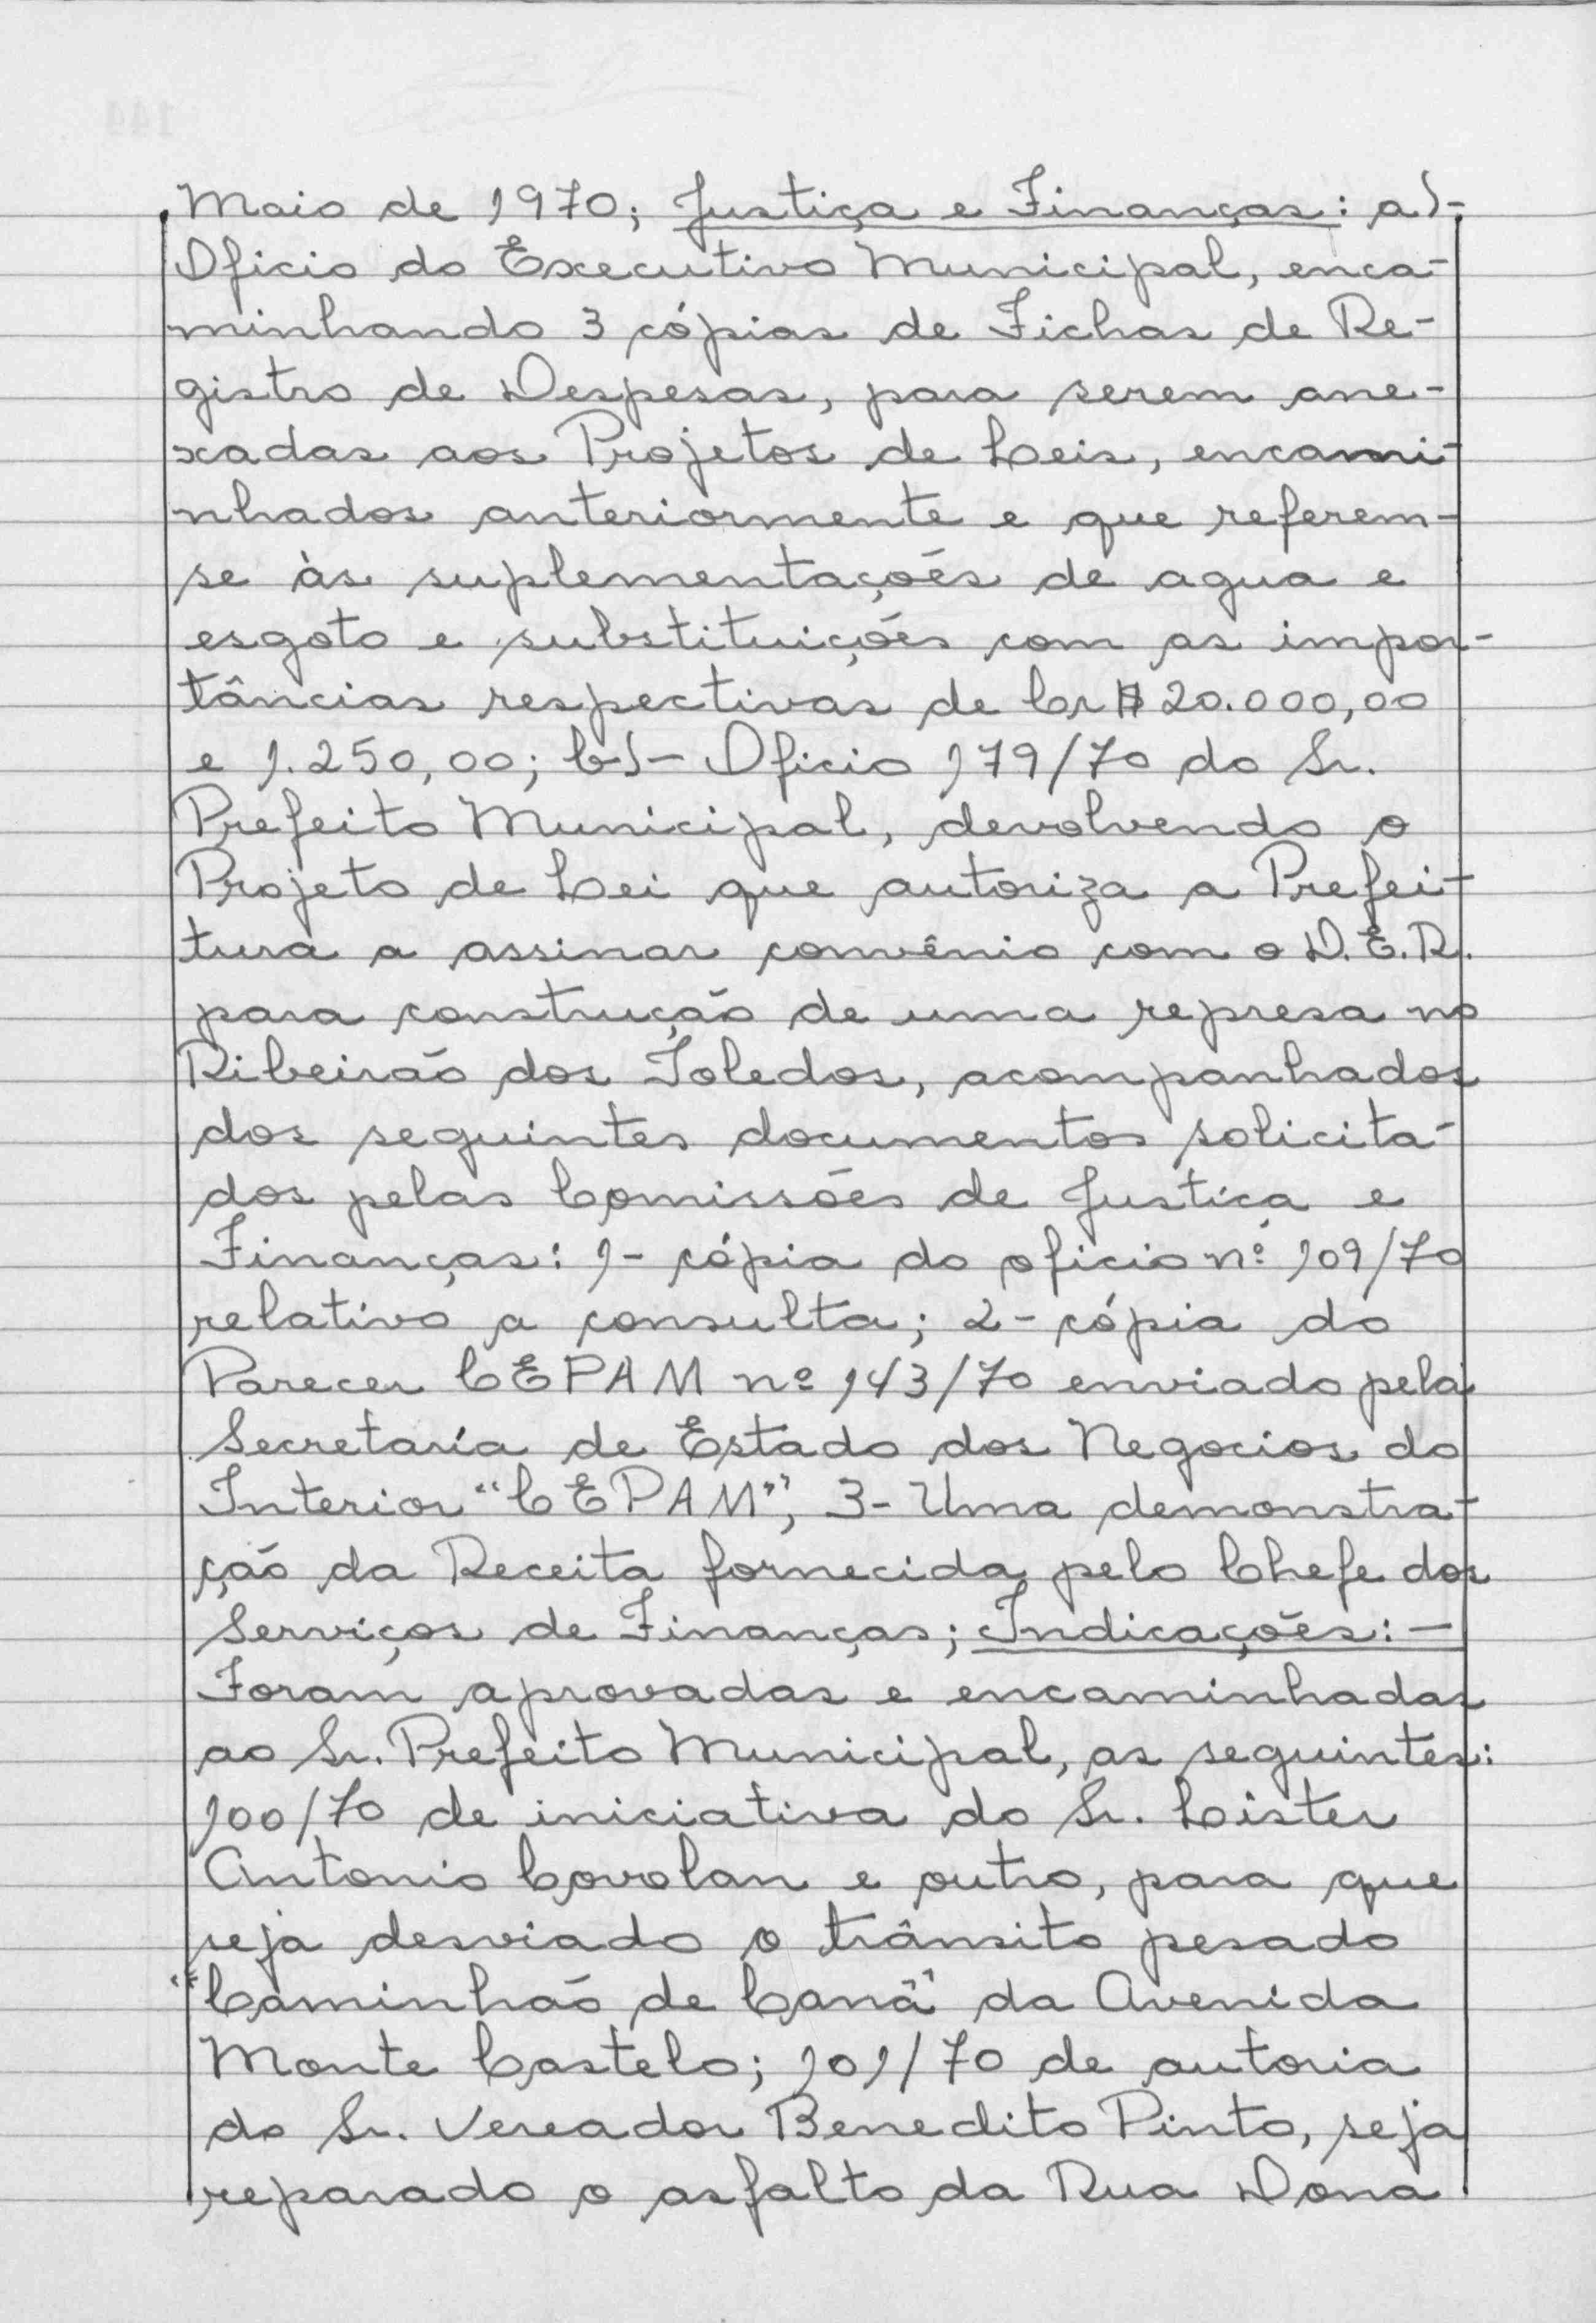 Maio de 1970; Justiça e Finanças: a)-
Oficio do Executivo Municipal, enca-
minhando 3 cópias de Fichas de Re-
gistro de Despesas, para serem ane-
xadas aos Projetos de Leis, encami-
nhados anteriormente e que referem-
se às suplementações de agua e
esgoto e substituições com as impor-
tâncias respectivas de Cr$ 20.000,00
e 1.250,00; b)- Oficio 179/70 do Sr.
Prefeito Municipal, devolvendo o
Projeto de Lei que autoriza a Prefei-
tura a assinar convênio com o D.E.R.
para construção de uma represa no
Ribeirão dos Toledos, acompanhados
dos seguintes documentos solicita-
dos pelas Comissões de Justiça e
Finanças: 1- cópia do oficio nº 109/70
relativo a consulta; 2- cópia do
Parecer CEPAM nº 143/70 enviado pela
Secretaría de Estado dos Negocios do
Interior "CEPAM", 3- Uma demonstra-
ção da Receita fornecida pelo Chefe dos
Serviços de Finanças; Indicações:-
Foram aprovadas e encaminhadas
ao Sr. Prefeito Municipal, as seguintes:
100/70 de iniciativa do Sr. Lister
Antonio Covolan e outro, para que
seja desviado o trânsito pesado
"Caminhão de Canã" da Avenida
Monte Castelo; 101/70 de autoria
do Sr. Vereador Benedito Pinto, seja
reparado o asfalto da Rua Dona